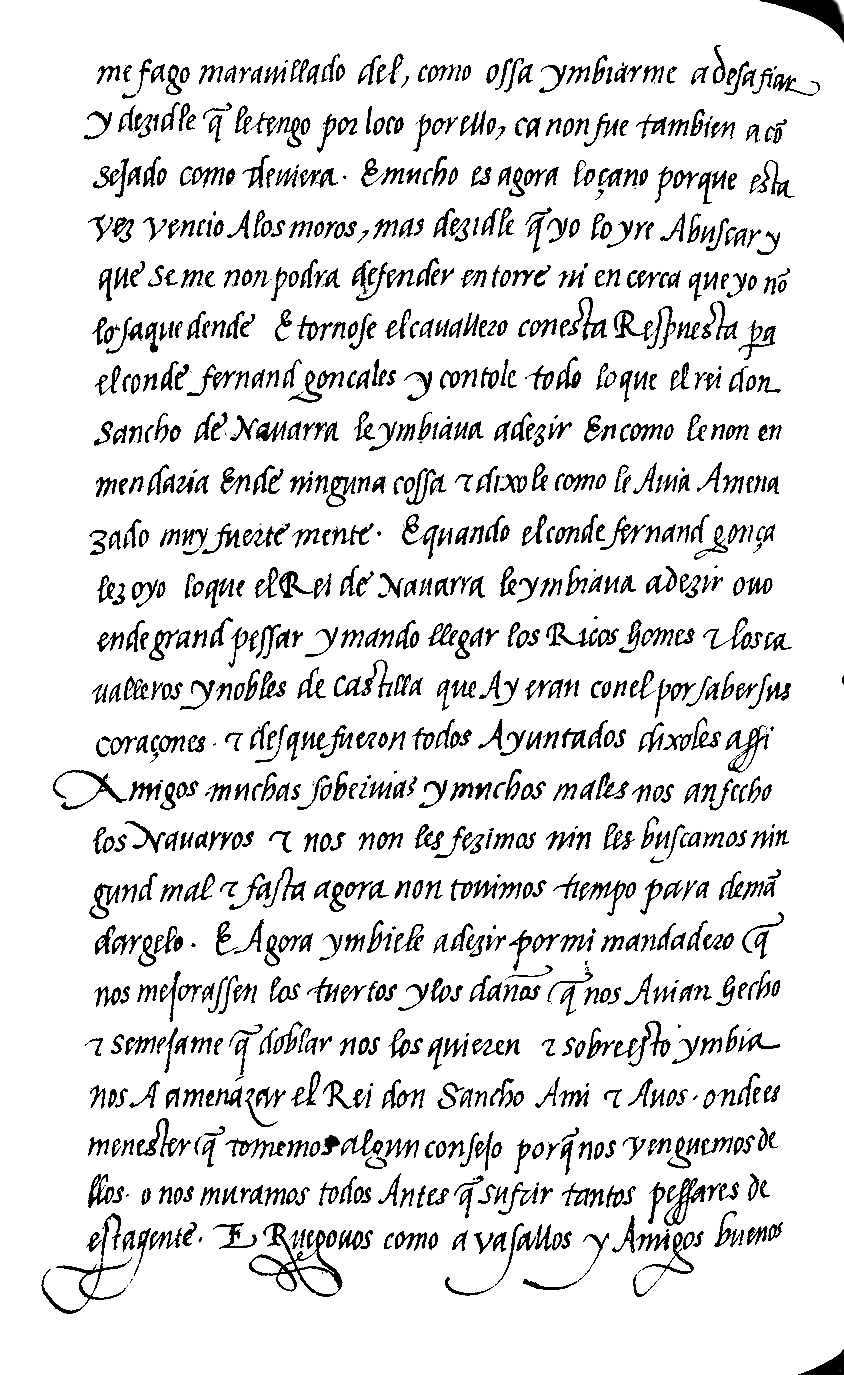 me fago marauillado del, como ossa ymbiarme a desafiar
y dezidle q̃ le tengo por loco por ello, ca non fue tambien a cõ
sejado como deuiera. E mucho es agora loçano porque esta
vez vencio Alos moros, mas dezidle q̃ yo lo yre Abuscar y
que se me non podra defender en torre ni en cerca que yo nõ
lo saque dende E tornose el cauallero con esta Respuesta pa
el conde fernand goncales y contole todo lo que el rei don
Sancho de Nauarra le ymbiaua adezir En como le non en
mendaria Ende ninguna cossa τ dixole como le Auia Amena
zado muy fuerte mente. E quando el conde fernand gonça
lez oyo lo que el Rei de Nauarra le ymbiaua adezir ouo
ende grand pessar y mando llegar los Ricos homes τ los ca
ualleros y nobles de Castilla que Ay eran con el por saber sus
coraçones. τ desque fueron todos Ayuntados dixoles assi
Amigos muchas soberuias y muchos males nos an fecho
los Nauarros τ nos non les fezimos nin les buscamos nin
gund mal τ fasta agora non touimos tiempo para demã
dargelo. E Agora ymbiele adezir por mi mandadero q̃
nos mejorassen los tuertos y los daños q̃ nos Auian hecho
τ semejame q̃ doblar nos los quieren τ sobre esto ymbia
nos A amenazar el Rei don Sancho Ami τ Auos. onde es
menester q̃ tomemos algun consejo porq̃ nos venguemos de
llos. o nos muramos todos Antes q̃ sufrir tantos pessares de
esta gente. E Ruegouos como a vasallos y Amigos buenos